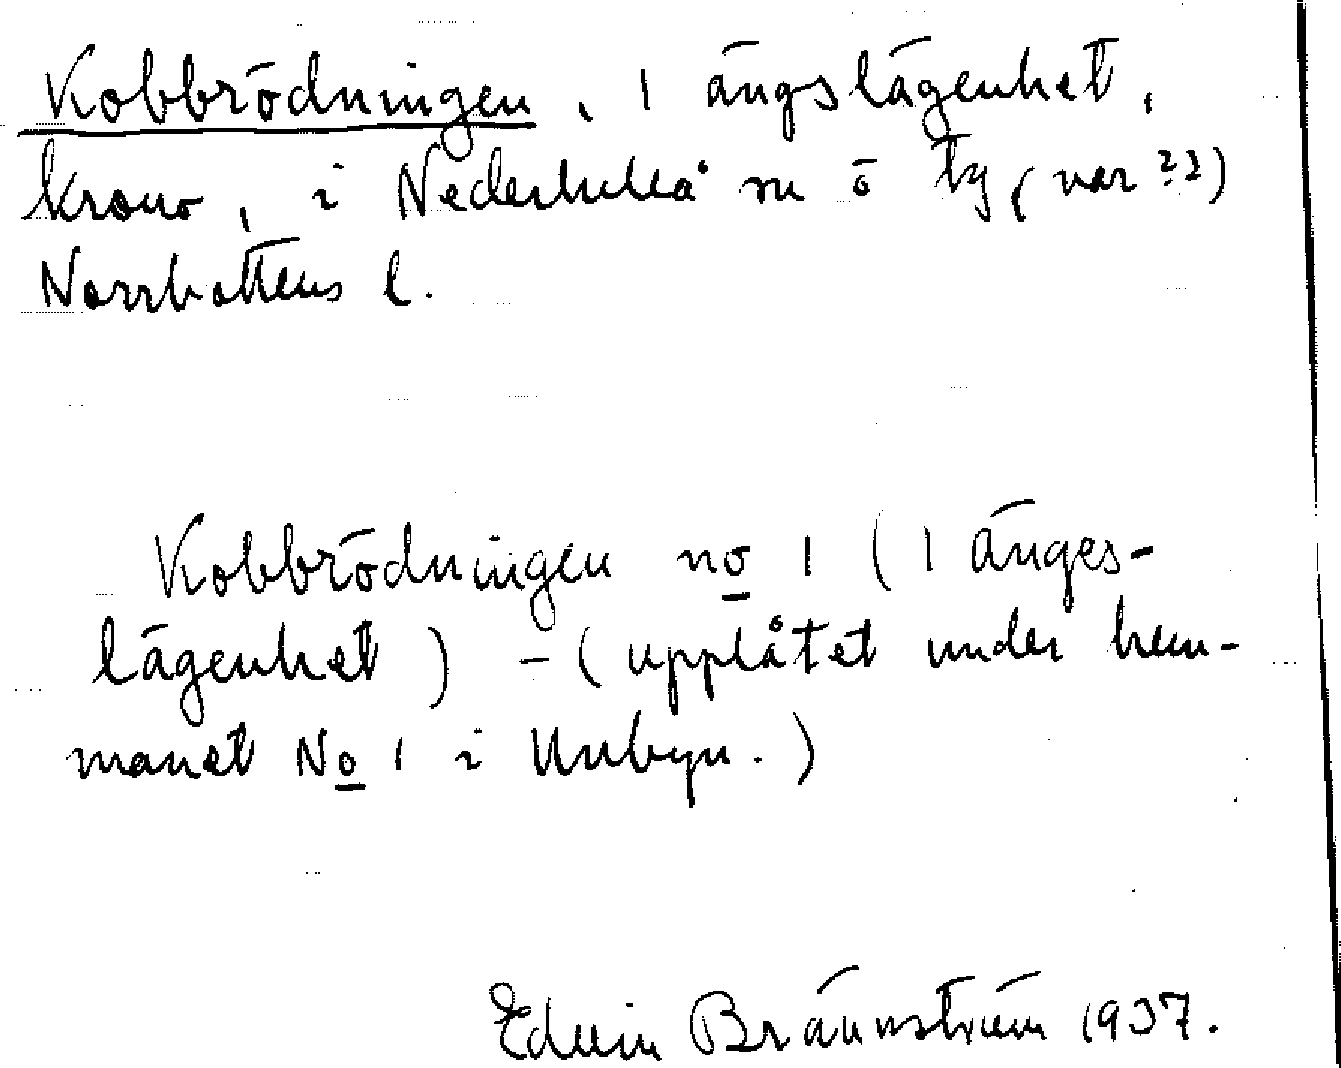 Kobbrödningen, 1 ängslägenhet,
krono, i Nederluleå sn o tg (var ??)
Norrbottens l.
Kobbrödningen no 1 (1 änges-
lägenhet) - (upplåtet under hem-
manet No 1 i Unbyn.)
Edvin Brännström 1937.